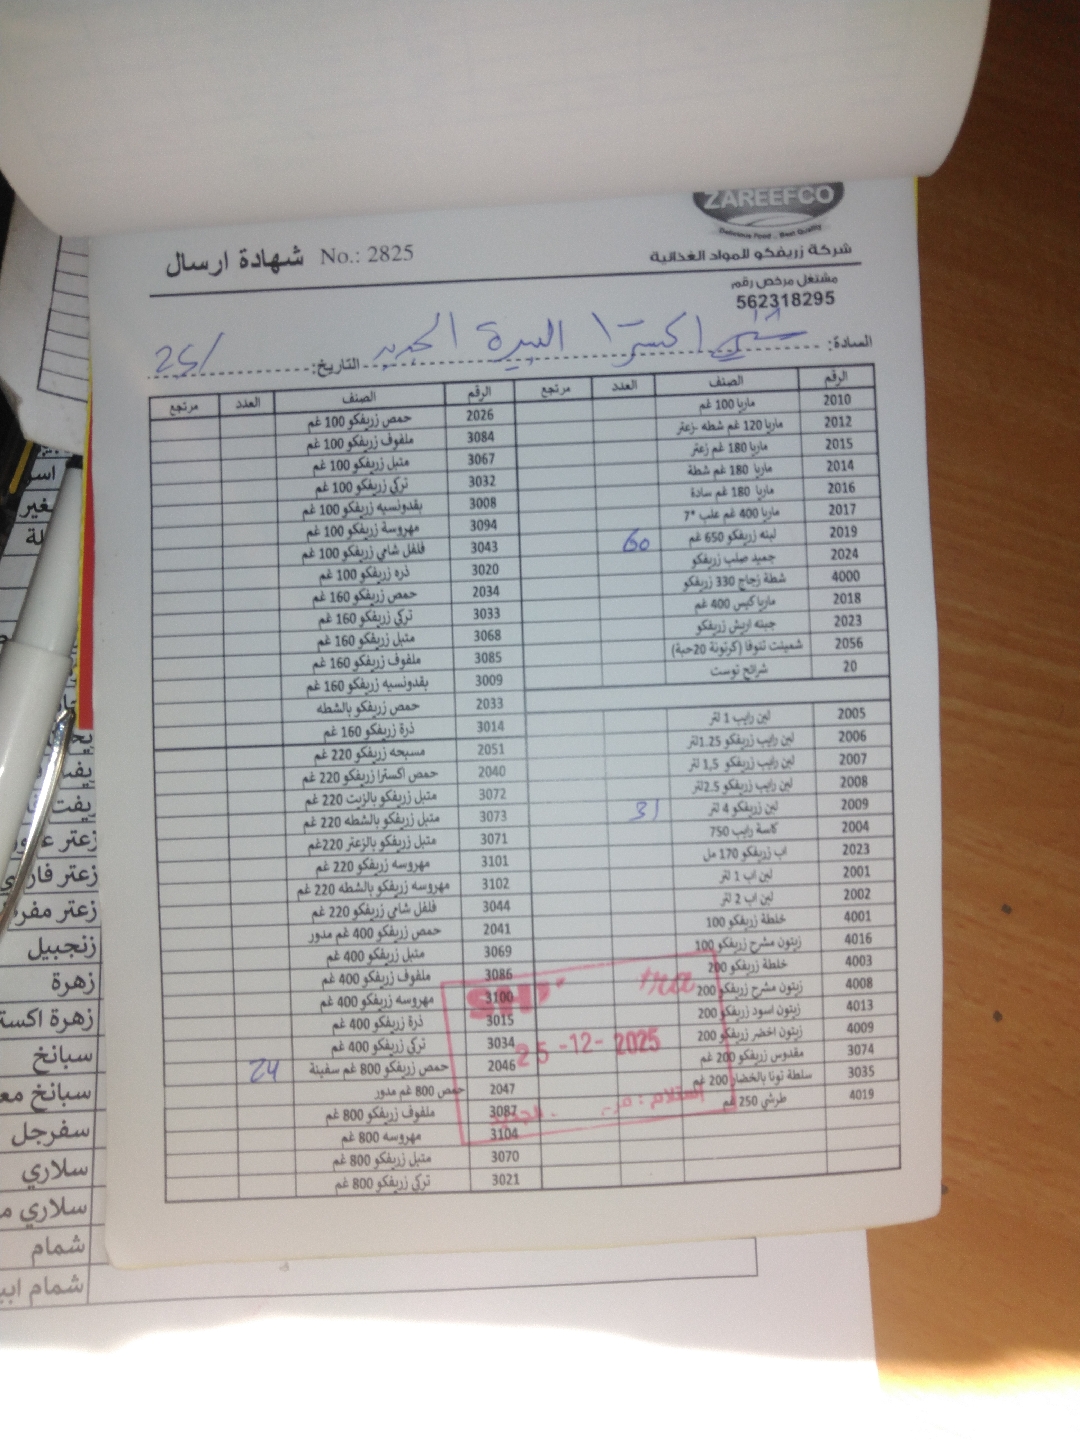 ZAREEFCO
Delicious Food .. Best Quality
شركة زريفكو للمواد الغذائية
شهادة ارسال No.: 2825
مشتغل مرخص رقم
562318295
السادة: اكسترا البيرة الجديد التاريخ: 25/
الرقم الصنف العدد مرتجع الرقم الصنف العدد مرتجع
2010 ماريا 100 غم 2026 حمص زريفكو 100 غم
2012 ماريا 120 غم شطه -زعتر 3084 ملفوف زريفكو 100 غم
2015 ماريا 180 غم زعتر 3067 متبل زريفكو 100 غم
2014 ماريا 180 غم شطة 3032 تركي زريفكو 100 غم
2016 ماريا 180 غم سادة 3008 بقدونسيه زريفكو 100 غم
2017 ماريا 400 غم علب *7 3094 مهروسة زريفكو 100 غم
2019 لبنه زريفكو 650 غم 60 3043 فلفل شامي زريفكو 100 غم
2024 جميد صلب زريفكو 3020 ذره زريفكو 100 غم
4000 شطة زجاج 330 زريفكو 2034 حمص زريفكو 160 غم
2018 ماريا كيس 400 غم 3033 تركي زريفكو 160 غم
2023 جبنه اريش زريفكو 3068 متبل زريفكو 160 غم
2056 شمينت تنوفا (كرتونة 20حبة) 3085 ملفوف زريفكو 160 غم
20 شرائح توست 3009 بقدونسيه زريفكو 160 غم
2033 حمص زريفكو بالشطه
2005 لبن رايب 1 لتر 3014 ذرة زريفكو 160 غم
2006 لبن رايب زريفكو 1.25لتر 2051 مسبحه زريفكو 220 غم
2007 لبن رايب زريفكو 1,5 لتر 2040 حمص اكسترا زريفكو 220 غم
2008 لبن رايب زريفكو 2.5لتر 3072 متبل زريفكو بالزيت 220 غم
2009 لبن زريفكو 4 لتر 31 3073 متبل زريفكو بالشطه 220 غم
2004 كاسة رايب 750 3071 متبل زريفكو بالزعتر 220غم
2023 اب زريفكو 170 مل 3101 مهروسه زريفكو 220 غم
2001 لبن اب 1 لتر 3102 مهروسه زريفكو بالشطه 220 غم
2002 لبن اب 2 لتر 3044 فلفل شامي زريفكو 220 غم
4001 خلطة زريفكو 100 2041 حمص زريفكو 400 غم مدور
4016 زيتون مشرح زريفكو 100 3069 متبل زريفكو 400 غم
4003 خلطة زريفكو 200 3086 ملفوف زريفكو 400 غم
4008 زيتون مشرح زريفكو 200 3100 مهروسه زريفكو 400 غم
4013 زيتون اسود زريفكو 200 3015 ذرة زريفكو 400 غم
4009 زيتون اخضر زريفكو 200 3034 تركي زريفكو 400 غم
3074 مقدوس زريفكو 200 غم 2046 حمص زريفكو 800 غم سفينة 24
3035 سلطة تونا بالخضار 200 غم 2047 حمص 800 غم مدور
4019 طرشي 250 غم 3087 ملفوف زريفكو 800 غم
3104 مهروسه 800 غم
3070 متبل زريفكو 800 غم
3021 تركي زريفكو 800 غم
25 -12- 2025
زعتر فارسي
زنجبيل
زهرة
زهرة اكسترا
سبانخ
سفرجل
سلاري
شمام